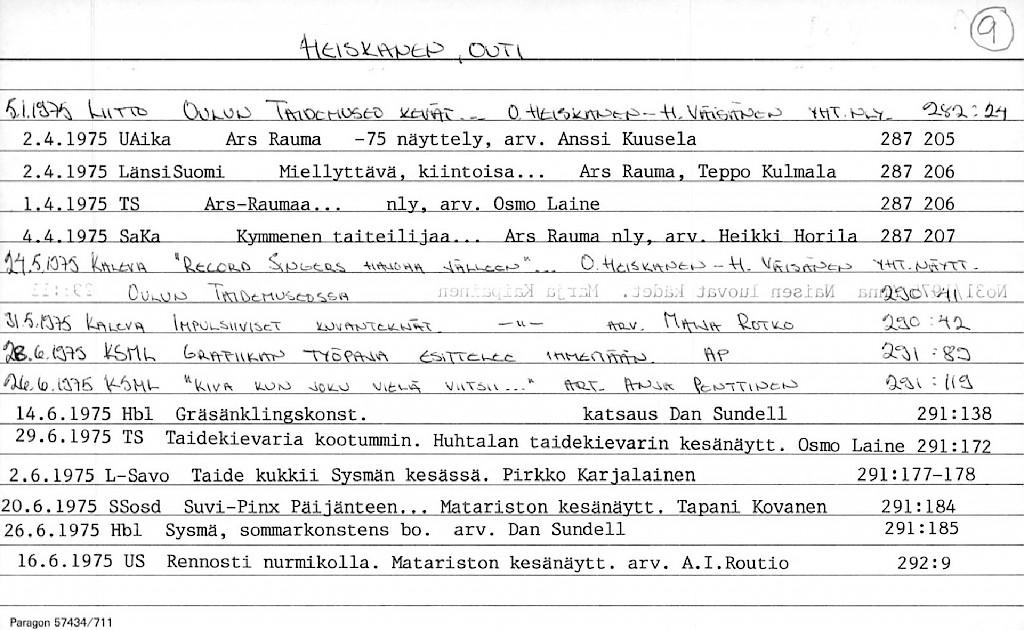 9
HEISKANEN, OUTI
5.1.1975 LIITTO OULUN TAIDEMUSEO KEVÄT... O. HEISKANEN - H. VÄISÄNEN YHT.NLY. 282:24
2.4.1975 UAika Ars Rauma -75 näyttely, arv. Anssi Kuusela 287 205
2.4.1975 LänsiSuomi Miellyttävä, kiintoisa... Ars Rauma, Teppo Kulmala 287 206
1.4.1975 TS Ars-Raumaa... nly, arv. Osmo Laine 287 206
4.4.1975 SaKa Kymmenen taiteilijaa... Ars Rauma nly, arv. Heikki Horila 287 207
24.5.1975 KALEVA "RECORD SINGERS JÄLLEEN"... O. HEISKANEN - H. VÄISÄNEN YHT. NÄYTT.
OULUN TAIDEMUSEOSSA 290:41
31.5.1975 KALEVA IMPULSIIVISET KUVANTEKIJÄT -"- ARV. MAIJA ROTKO 290:42
28.6.1975 KSML GRAFIIKAN TYÖPAJA ESITTELEE AP 291:89
26.6.1975 KSML "KIVA KUN JOKU VIELÄ VIITSII..." ART. ANJA PENTTINEN 291:119
14.6.1975 Hbl Gräsänklingskonst. katsaus Dan Sundell 291:138
29.6.1975 TS Taidekievaria kootummin. Huhtalan taidekievarin kesänäytt. Osmo Laine 291:172
2.6.1975 L-Savo Taide kukkii Sysmän kesässä. Pirkko Karjalainen 291:177-178
20.6.1975 SSosd Suvi-Pinx Päijänteen... Matariston kesänäytt. Tapani Kovanen 291:184
26.6.1975 Hbl Sysmä, sommarkonstens bo. arv. Dan Sundell 291:185
16.6.1975 US Rennosti nurmikolla. Matariston kesänäytt. arv. A.I.Routio 292:9
Paragon 57434/711